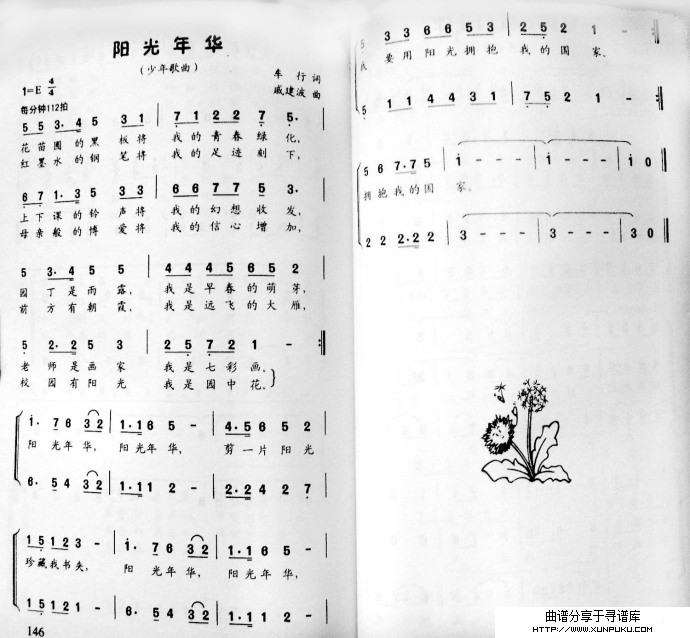 阳光年华
(少年歌曲)
1=E 4/4
每分钟112拍
牟 行 词
戚建波 曲
5 5 3· 4 5 3 1 | 7 1 2 2 7 5· |
花苗圃的黑 板将 我的青春绿化,
红墨水的钢 笔将 我的足迹刻下,
6 7 1· 3 5 3 3 | 6 6 7 7 5 3· |
上下课的铃 声将 我的幻想收发,
母亲般的博 爱将 我的信心增加,
5 3· 4 5 5 | 4 4 4 5 6 5 2 |
园 丁是雨露, 我是早春的萌芽,
前 方有朝霞, 我是远飞的大雁,
5 2· 2 5 3 | 2 5 7 2 1 - :||
老 师是画家 我是七彩画。
校 园有阳光 我是园中花。
1· 7 6 3 2 | 1· 1 6 5 - | 4· 5 6 5 5 |
阳 光年华, 阳光年华, 剪一片阳光
6· 5 4 3 2 | 1· 1 1 2 - | 2· 2 4 2 7 |
1 5 1 2 3 - | 1· 7 6 3 2 | 1· 1 6 5 - |
珍藏我书夹, 阳 光年华, 阳光年华,
1 5 1 2 1 - | 6· 5 4 3 2 | 1· 1 1 2 - |
146
5 3 3 6 6 5 3 | 2 5 2 1 - :||
我 要用阳光拥抱 我的国家。
5 1 1 4 4 3 1 | 7 5 2 1 - :||
5 6 7· 7 5 | 1 - - - | 1 - - - | 1 0 ||
拥抱我的国 家。
2 2 2· 2 2 | 3 - - - | 3 - - - | 3 0 ||
曲谱分享于寻谱库
HTTP://WWW.XUNPUKU.COM